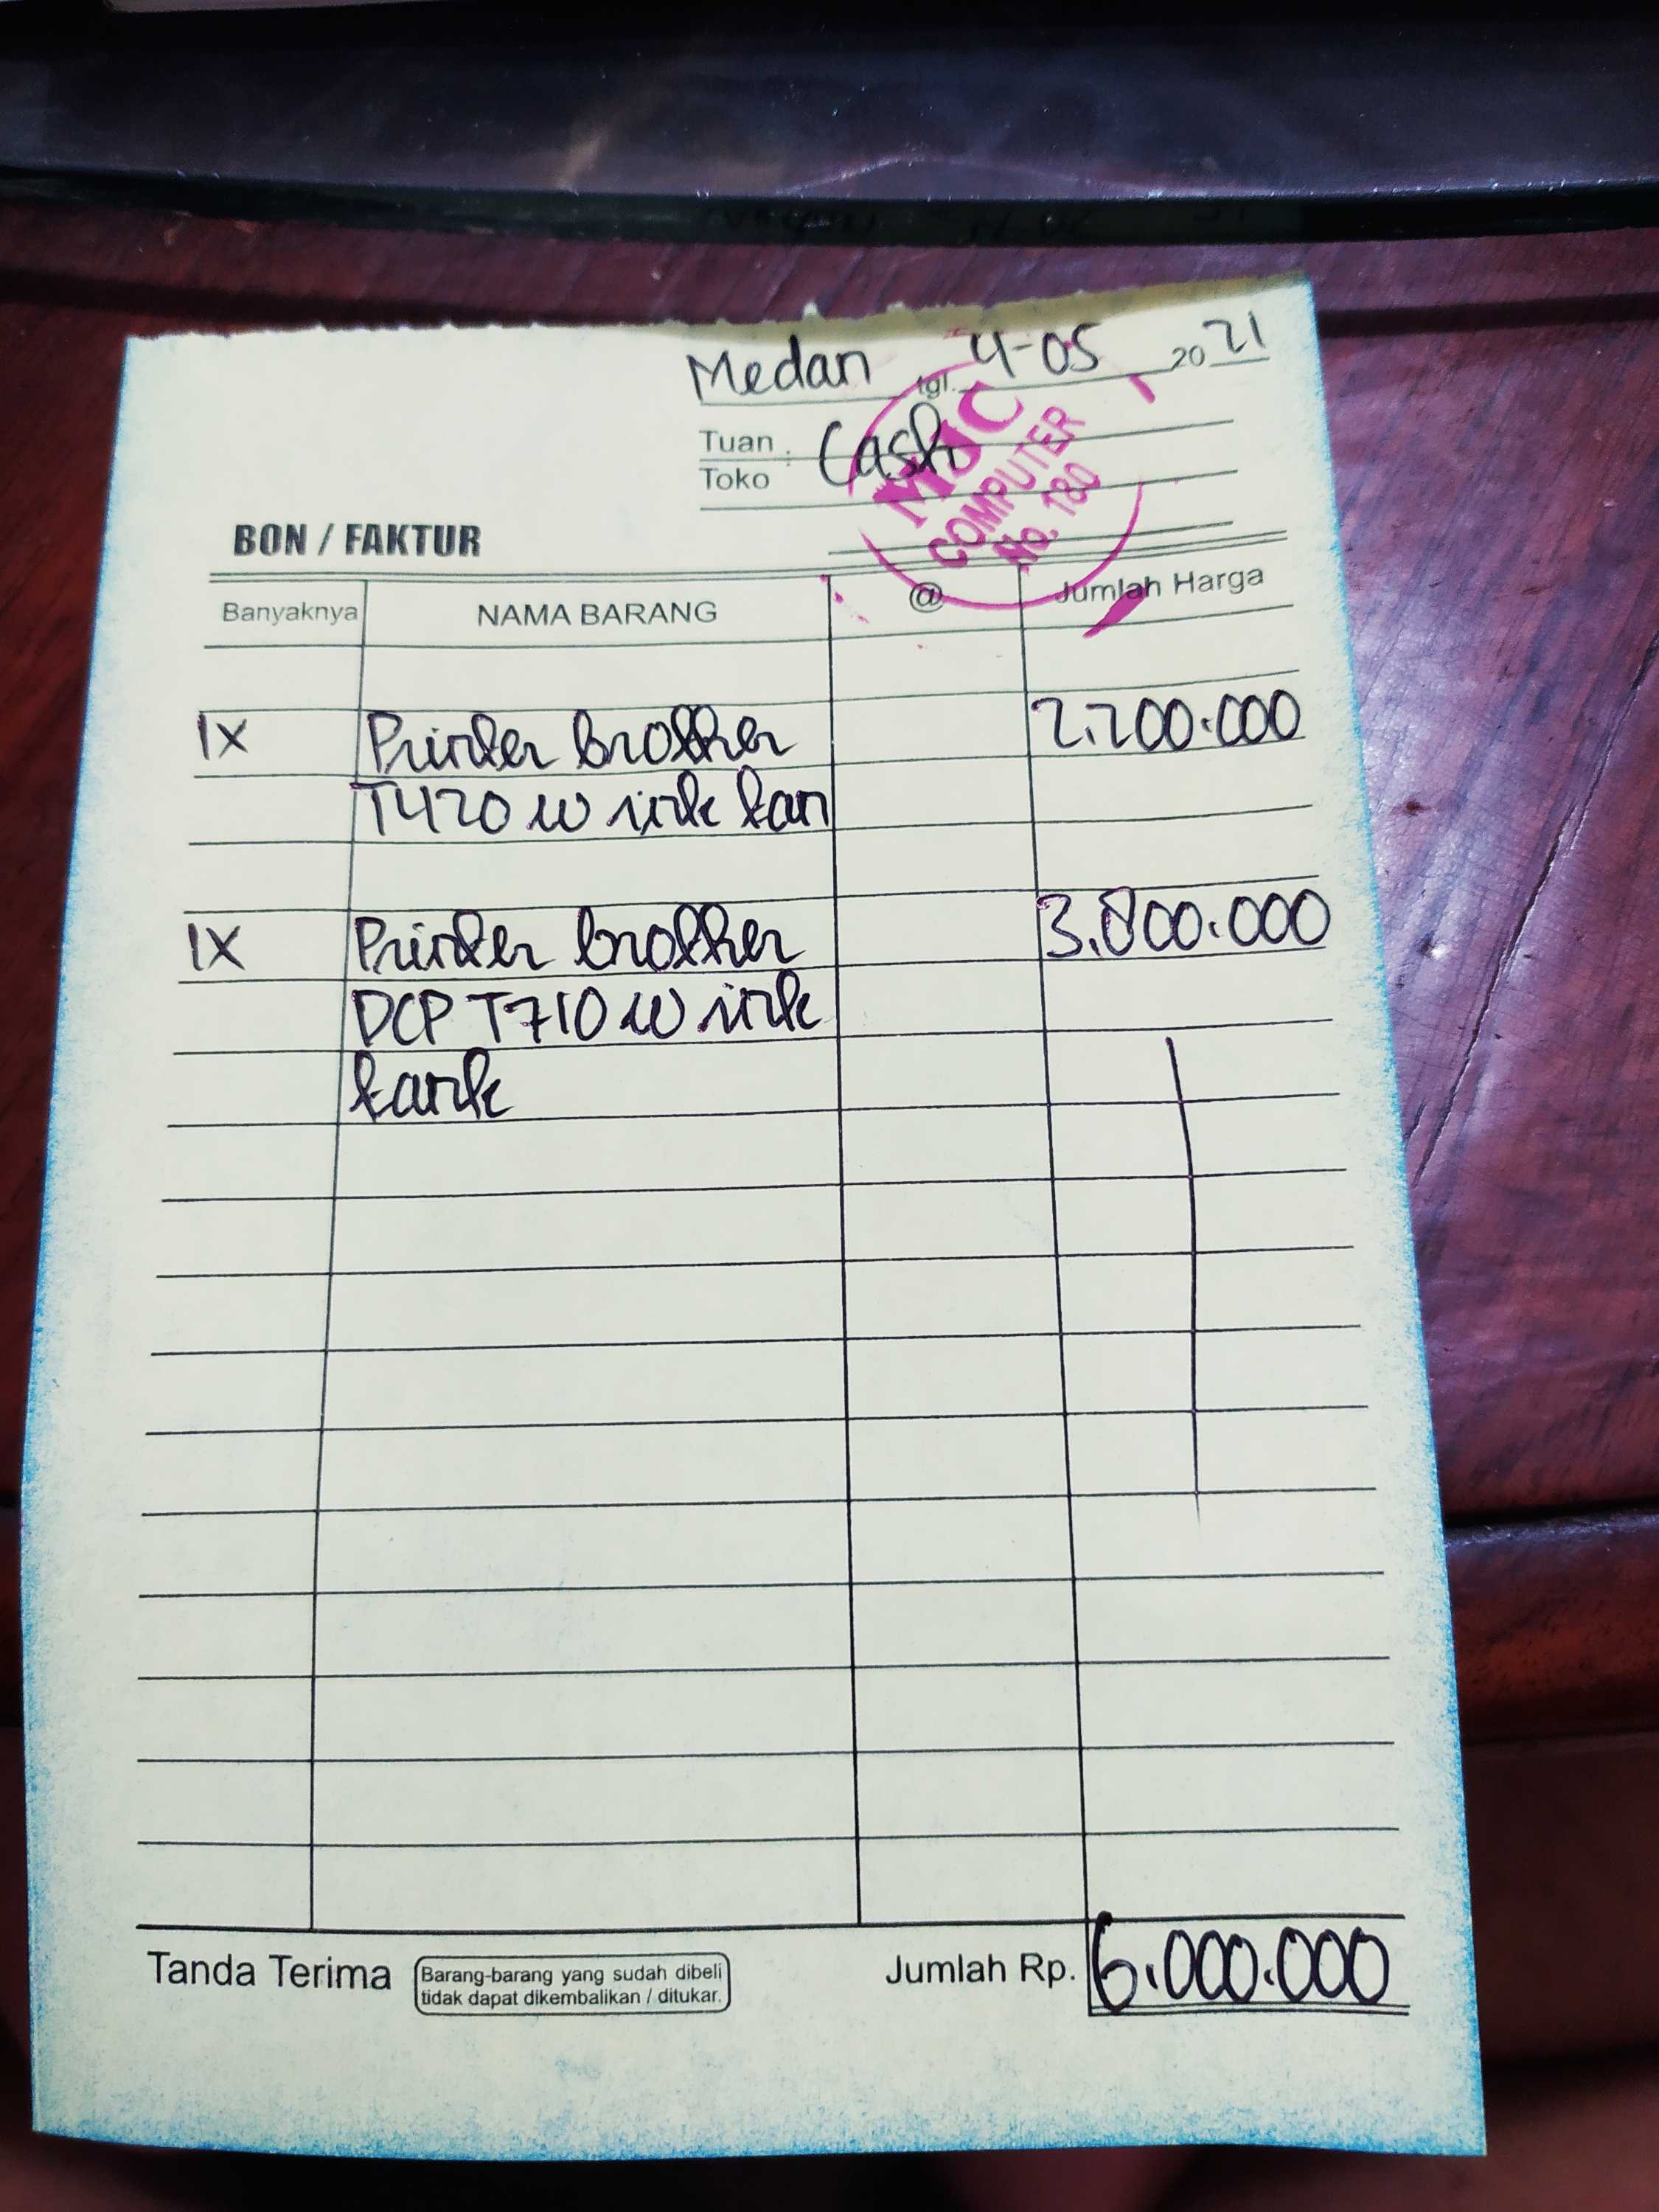 Medan tgl. 4-05 2021
Tuan : Cash
Toko
MUC
COMPUTER
No. 180
BON / FAKTUR
Banyaknya NAMA BARANG @ Jumlah Harga
1x Printer brother 2.200.000
T420 w ink tan
1X Printer brother 3.800.000
DCP T710 w ink
tank
Tanda Terima Barang-barang yang sudah dibeli
tidak dapat dikembalikan / ditukar.
Jumlah Rp. 6.000.000